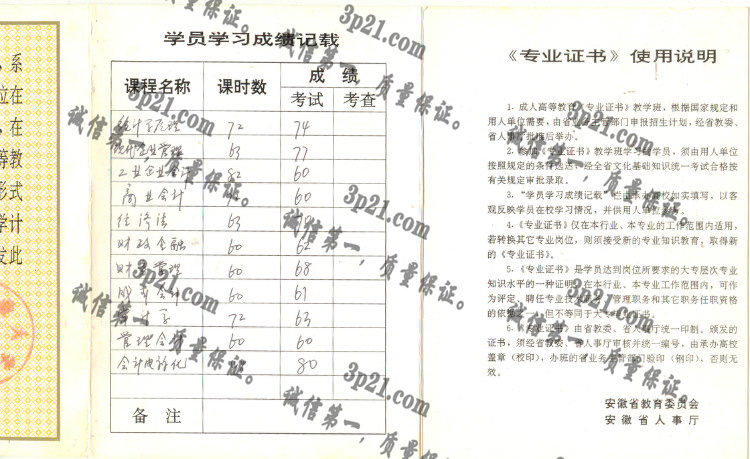 ，系
位在
，在
等教
形式
学计
发此
学员学习成绩记载
课程名称 课时数 成绩
考试 考查
统计学原理 72 74
现代企业管理 63 77
工业企业会计 82 60
商业会计 60
经济法 63
财政金融 60 62
财务管理 60 68
60 61
审计学 72 63
管理会计 60 60
会计电算化 80
备注
《专业证书》使用说明
1.成人高等教育《专业证书》教学班，根据国家规定和
用人单位需要，由省业务主管部门申报招生计划，经省教委、
省人事厅批准后举办。
2.参加《专业证书》教学班学习的学员，须由用人单位
按照规定的条件选送，经全省文化基础知识统一考试合格按
有关规定审批录取。
3.“学员学习成绩记载”栏由承办高校如实填写，以客
观反映学员在校学习情况，并供用人单位参考。
4.《专业证书》仅在本行业、本专业的工作范围内适用，
若转换其它专业岗位，则须接受新的专业知识教育，取得新
的《专业证书》。
5.《专业证书》是学员达到岗位所要求的大专层次专业
知识水平的一种证明，在本行业、本专业工作范围内，可作
为评定、聘任专业技术职务、管理职务和其它职务任职资格
的依据之一，但不等同于大专毕业证书。
6.《专业证书》由省教委、省人事厅统一印制。颁发的
证书，须经省教委、省人事厅审核并统一编号，由承办高校
盖章（校印），办班的省业务主管部门验印（钢印），否则无
效。
安徽省教育委员会
安徽省人事厅
3p21.com
诚信第一，质量保证。
3p21.com
诚信第一，质量保证。
3p21.com
诚信第一，质量保证。
3p21.com
诚信第一，质量保证。
3p21.com
诚信第一，质量保证。
3p21.com
诚信第一，质量保证。